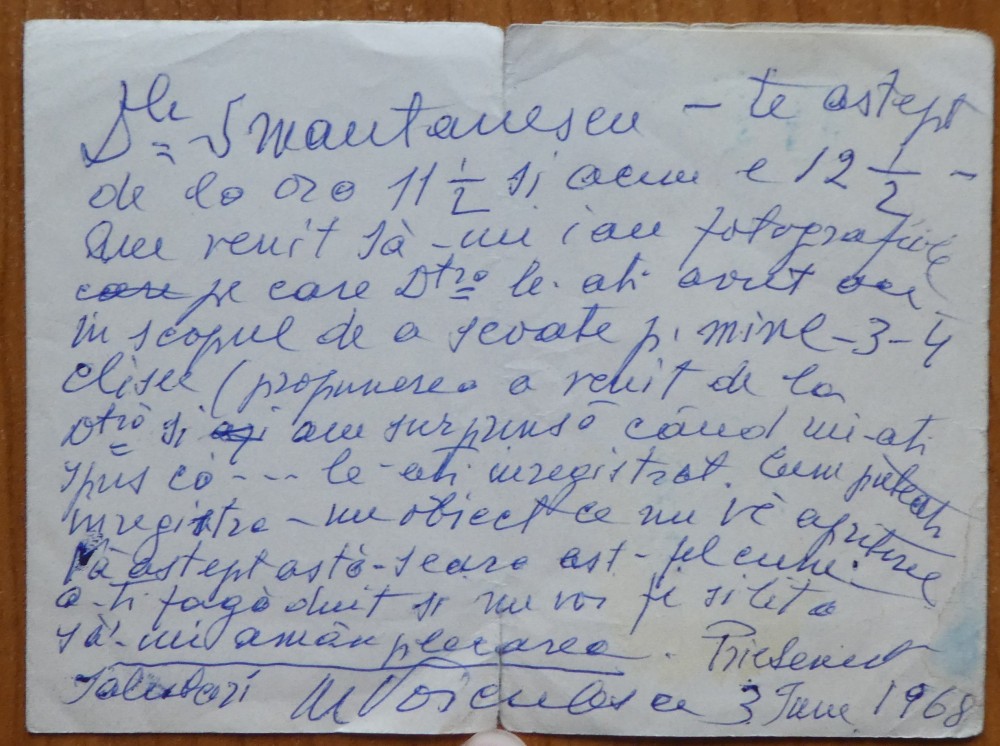 Dle Smantanescu – te astept
de la ora 11 1/2 si acum e 12 1/2 –
Am venit să-mi iau fotografiile
care pe care Dtră le-ati avut
in scopul de a scoate p. mine – 3 – 4
clisee (propunerea a venit de la
Dtră si am surprinsă când mi-ati
spus că ---- le-ati inregistrat. Cum puteati
inregistra – un obiect ce nu vě apartine
Vă astept astă-seară ast-fel cum
a-ti fagăduit si nu voi fi silită
să-mi amân plecarea. Prietenest
Salutări M Voiculescu 3 Iunie 1968